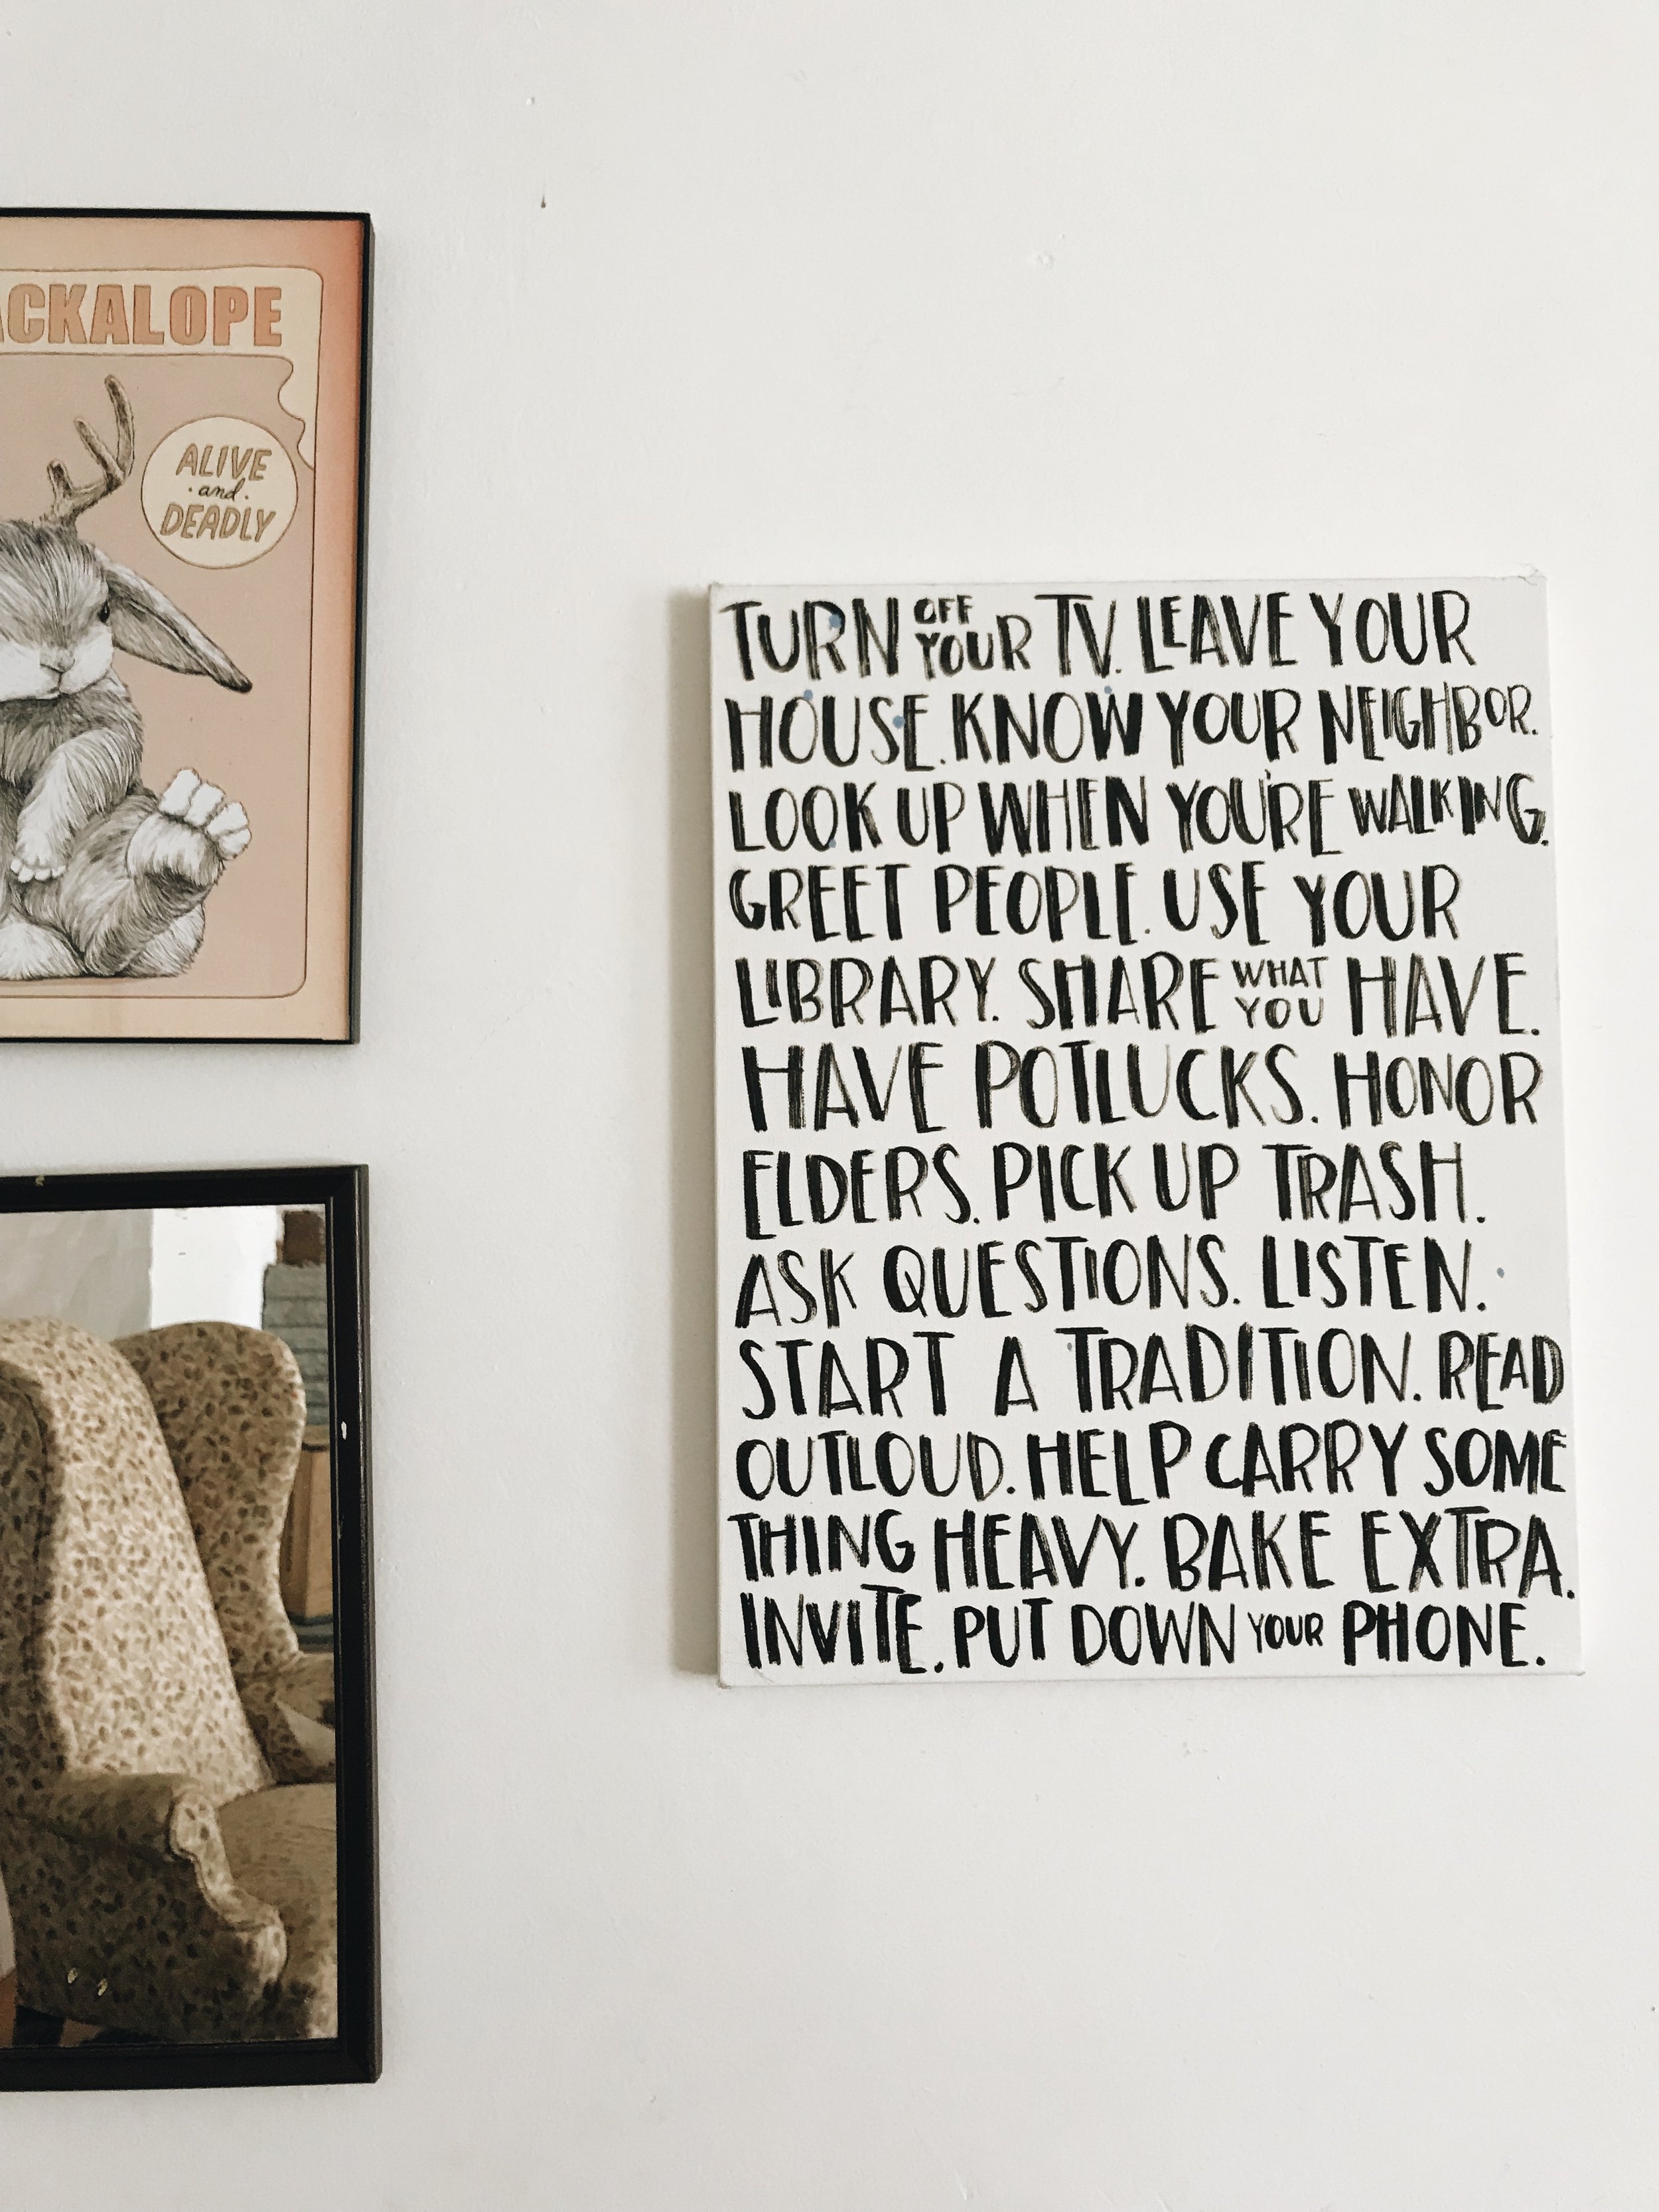 ACKALOPE
ALIVE
· and ·
DEADLY
TURN OFF YOUR TV. LEAVE YOUR
HOUSE. KNOW YOUR NEIGHBOR.
LOOK UP WHEN YOU'RE WALKING.
GREET PEOPLE. USE YOUR
LIBRARY. SHARE WHAT YOU HAVE.
HAVE POTLUCKS. HONOR
ELDERS. PICK UP TRASH.
ASK QUESTIONS. LISTEN.
START A TRADITION. READ
OUTLOUD. HELP CARRY SOME
THING HEAVY. BAKE EXTRA.
INVITE. PUT DOWN YOUR PHONE.